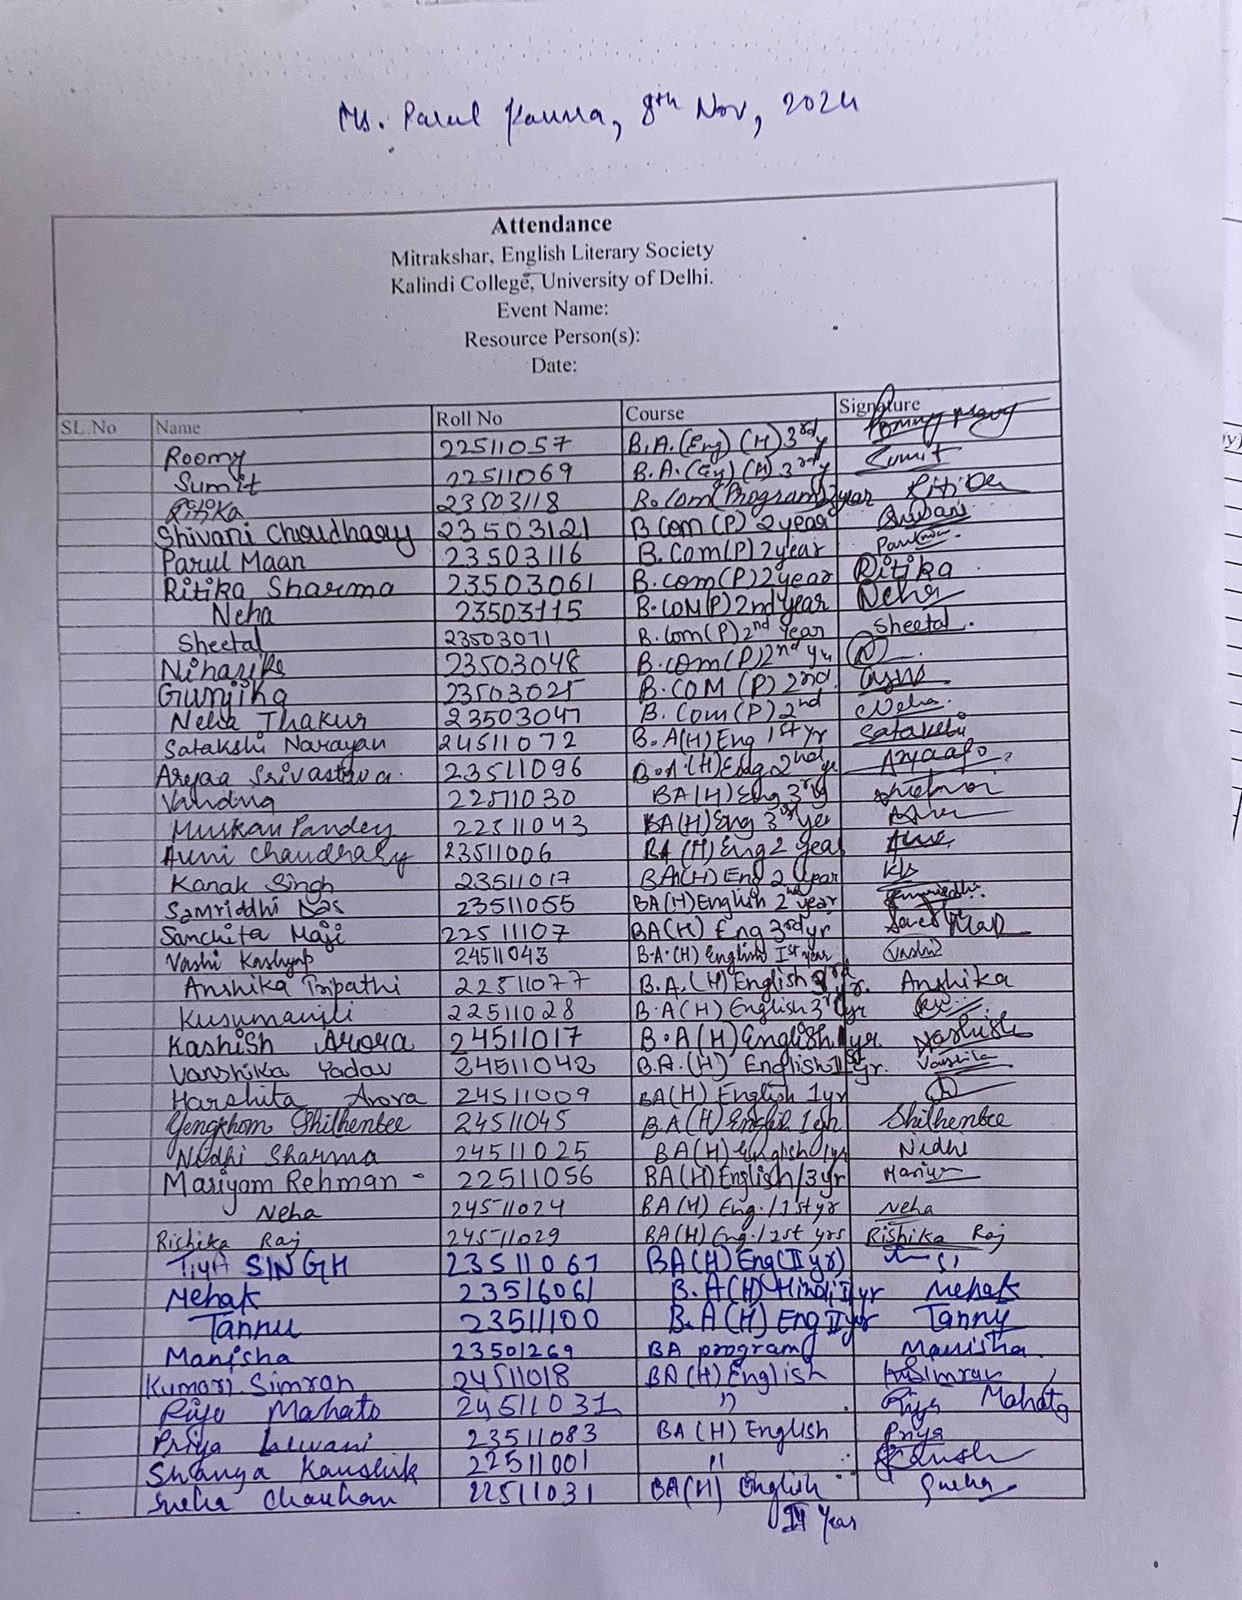 Ms. Parul 8th Nov, 2024
Attendance
Mitrakshar, English Literary Society
Kalindi College, University of Delhi.
Event Name:
Resource Person(s):
Date:
SL.No Name Roll No Course Signature
Roomy 22511057 B.A.(Eng) (H) 3rd y
Sumit 22511069 B.A.(Eng) (H) 3rd y Sumit
Ritika 23503118 B.Com(Program) 2year Ritika
Shivani Choudhary 23503121 B Com (P) 2year Shivani
Parul Maan 23503116 B.Com(P) 2year
Ritika Sharma 23503061 B.com(P) 2year Ritika
Neha 23503115 B.COM(P) 2nd Year Neha
Sheetal 23503071 B.Com(P) 2nd Year Sheetal.
Niharika 23503048 B.com(P) 2nd yr
Gunjika 23503025 B.COM (P) 2nd
Neha Thakur 23503047 B. Com(P) 2nd Neha.
Satakshi Narayan 24511072 B.A(H) Eng 1st yr Satakshi
Aryaa Srivastava. 23511096 B.A.(H) Eng 2nd ye
Vandna 22511030 BA(H) Eng 3rd
Muskan Pandey 22511043 BA(H) Eng 3rd ye
Avni Chaudhary 23511006 BA (H) Eng 2 year
Kanak Singh 23511017 BA(H) Eng 2 year
Samriddhi Das 23511055 BA(H) English 2nd year
Sanchita Maji 22511107 BA(H) Eng 3rd yr
Vashi Kashyap 24511043 B.A.(H) English Ist year Vashi
Anshika Tripathi 22511077 B.A.(H) English 3rd yr. Anshika
Kusumanjli 22511028 B.A(H) English 3rd yr
Kashish Arora 24511017 B.A(H) English 1 yr. Kashish
Vanshika Yadav 24511042 B.A.(H) English 1st yr. Vanshika
Harshita Arora 24511009 BA(H) English 1yr
Yengkhom Shilhenbee 24511045 B.A(H) English 1yr Shilhenbee
Nidhi Sharma 24511025 BA(H) English 1yr Nidhi
Mariyam Rehman - 22511056 BA(H) English/3yr
Neha 24511024 BA(H) Eng./1st yr Neha
Rishika Raj 24511029 BA(H) Eng./1st yrs Rishika Raj
Tiya SINGH 23511067 BA(H) Eng(II yr)
Mehak 23516061 B.A(H) Hindi II yr Mehak
Tannu 23511100 B.A(H) Eng II yr Tannu
Manisha 23501269 BA program Manisha.
Kumari Simran 24511018 BA(H) English
Riya Mahato 24511031 " Riya Mahato
Priya Lalwani 23511083 BA (H) English Priya
Shanya Kaushik 22511001 "
Sneha Chauhan 22511031 BA(H) English Sneha
Year